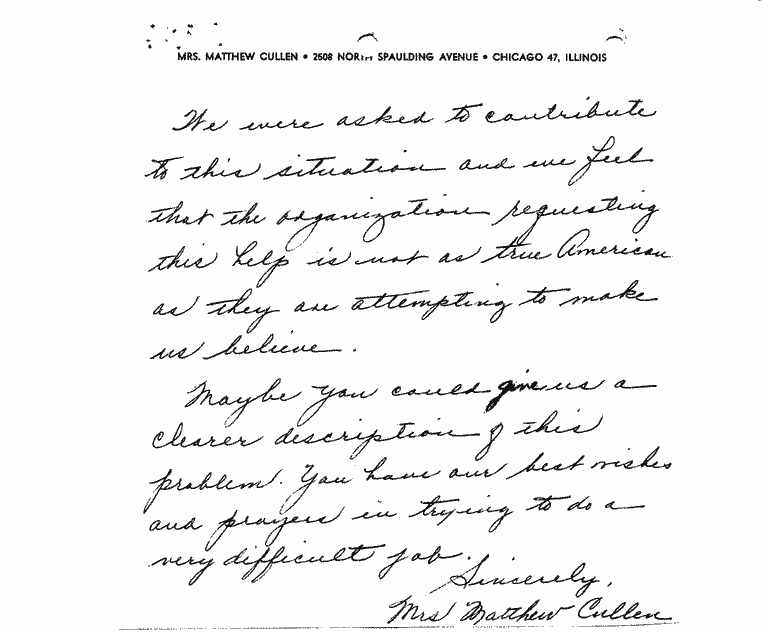 MRS. MATTHEW CULLEN • 2508 NORTH SPAULDING AVENUE • CHICAGO 47, ILLINOIS
We were asked to contribute
to this situation and we feel
that the organization requesting
this help is not as true American
as they are attempting to make
us believe.
Maybe you could give us a
clearer description of this
problem. You have our best wishes
and prayers in trying to do a
very difficult job.
Sincerely,
Mrs Matthew Cullen